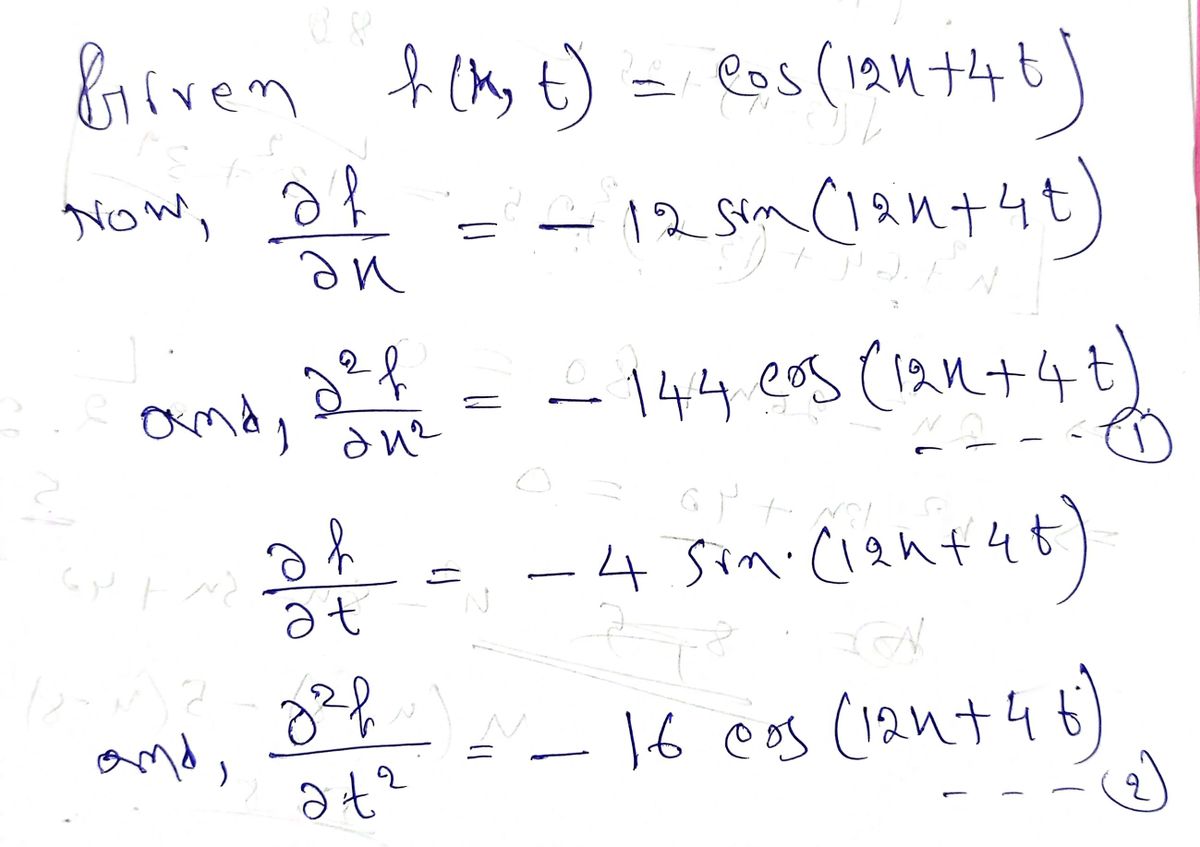 Given f(x, t) = cos(12x+4t)
Now, ∂f/∂x = − 12 sin(12x+4t)
and, ∂²f/∂x² = − 144 cos(12x+4t)
- - - - (1)
∂f/∂t = − 4 sin.(12x+4t)
and, ∂²f/∂t² = − 16 cos(12x+4t)
- - - (2)